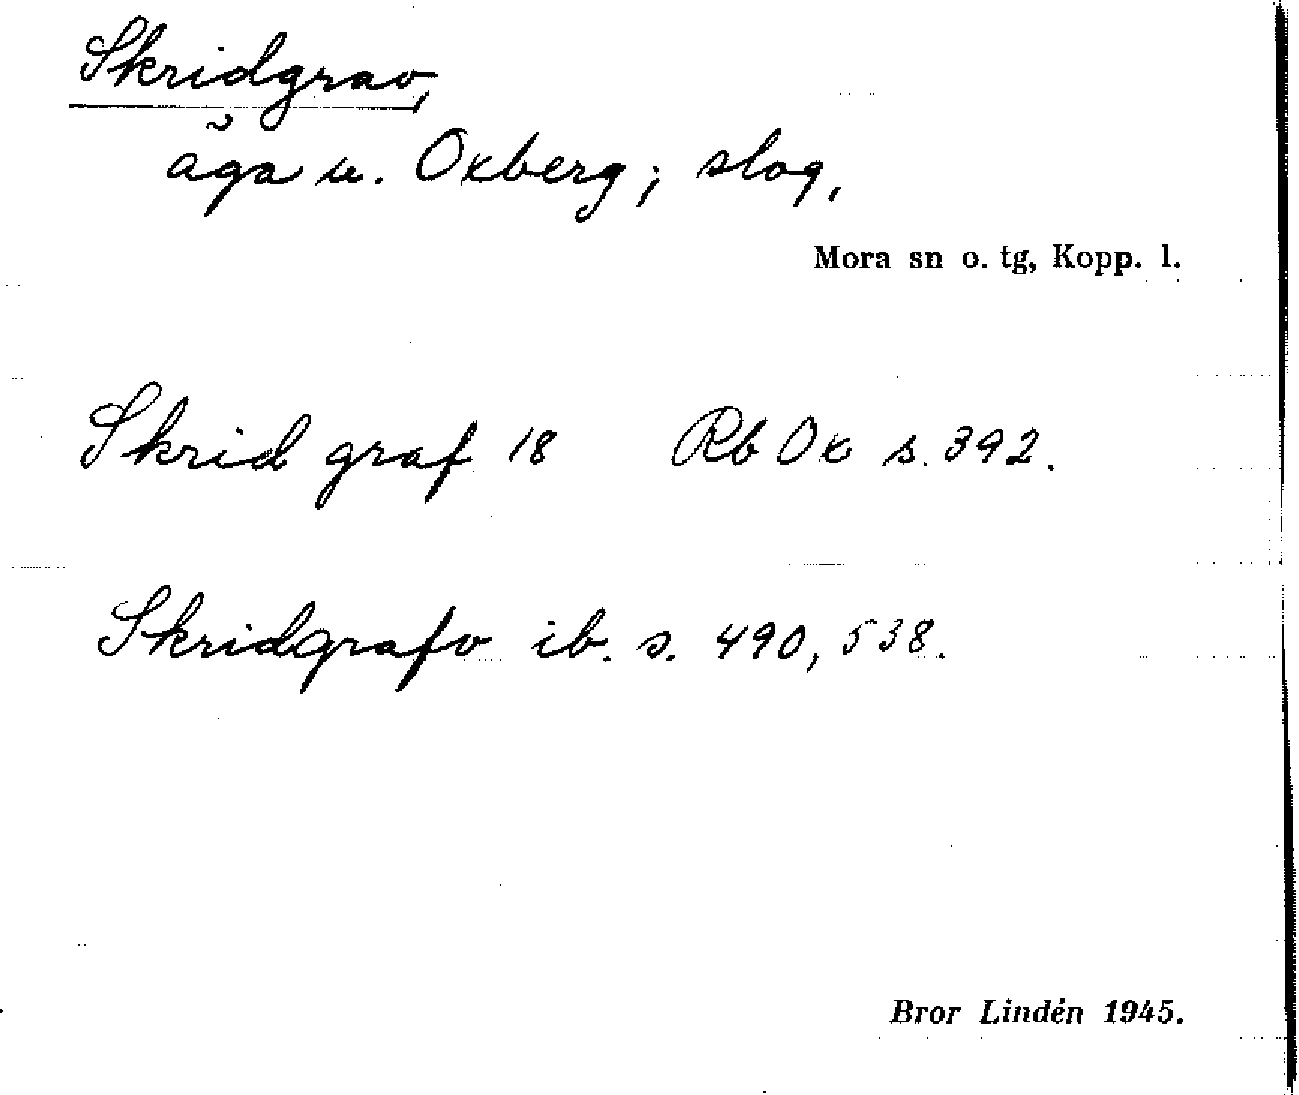 Skridgrav,
äga u. Oxberg; slog,
Mora sn o. tg, Kopp. l.
Skrid graf 18 Rb Ox s. 392.
Skridgrafv ib. s. 490, 538.
Bror Lindén 1945.